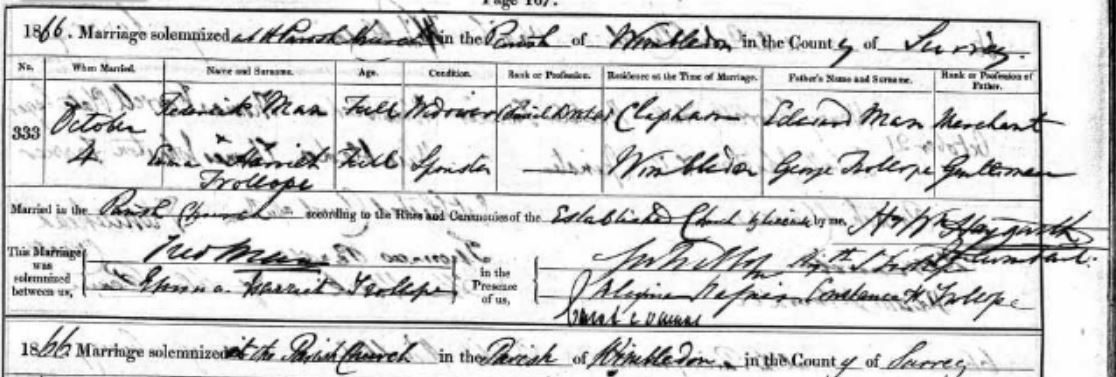 Page 167.
1866. Marriage solemnized at the Parish Church in the Parish of Wimbledon in the County of Surrey
No. When Married. Name and Surname. Age. Condition. Rank or Profession. Residence at the Time of Marriage. Father's Name and Surname. Rank or Profession of Father.
333 October 4 Frederick Man Full Widower Clapham Edward Man Merchant
Emma Harriet Trollope Full Spinster — Wimbledon George Trollope Gentleman
Married in the Parish Church according to the Rites and Ceremonies of the Established Church by licence by me, Hy Wm Haygarth
This Marriage was solemnized between us, Fred Man
Emma Harriet Trollope
in the Presence of us,
Constance H Trollope
1866. Marriage solemnized at the Parish Church in the Parish of Wimbledon in the County of Surrey